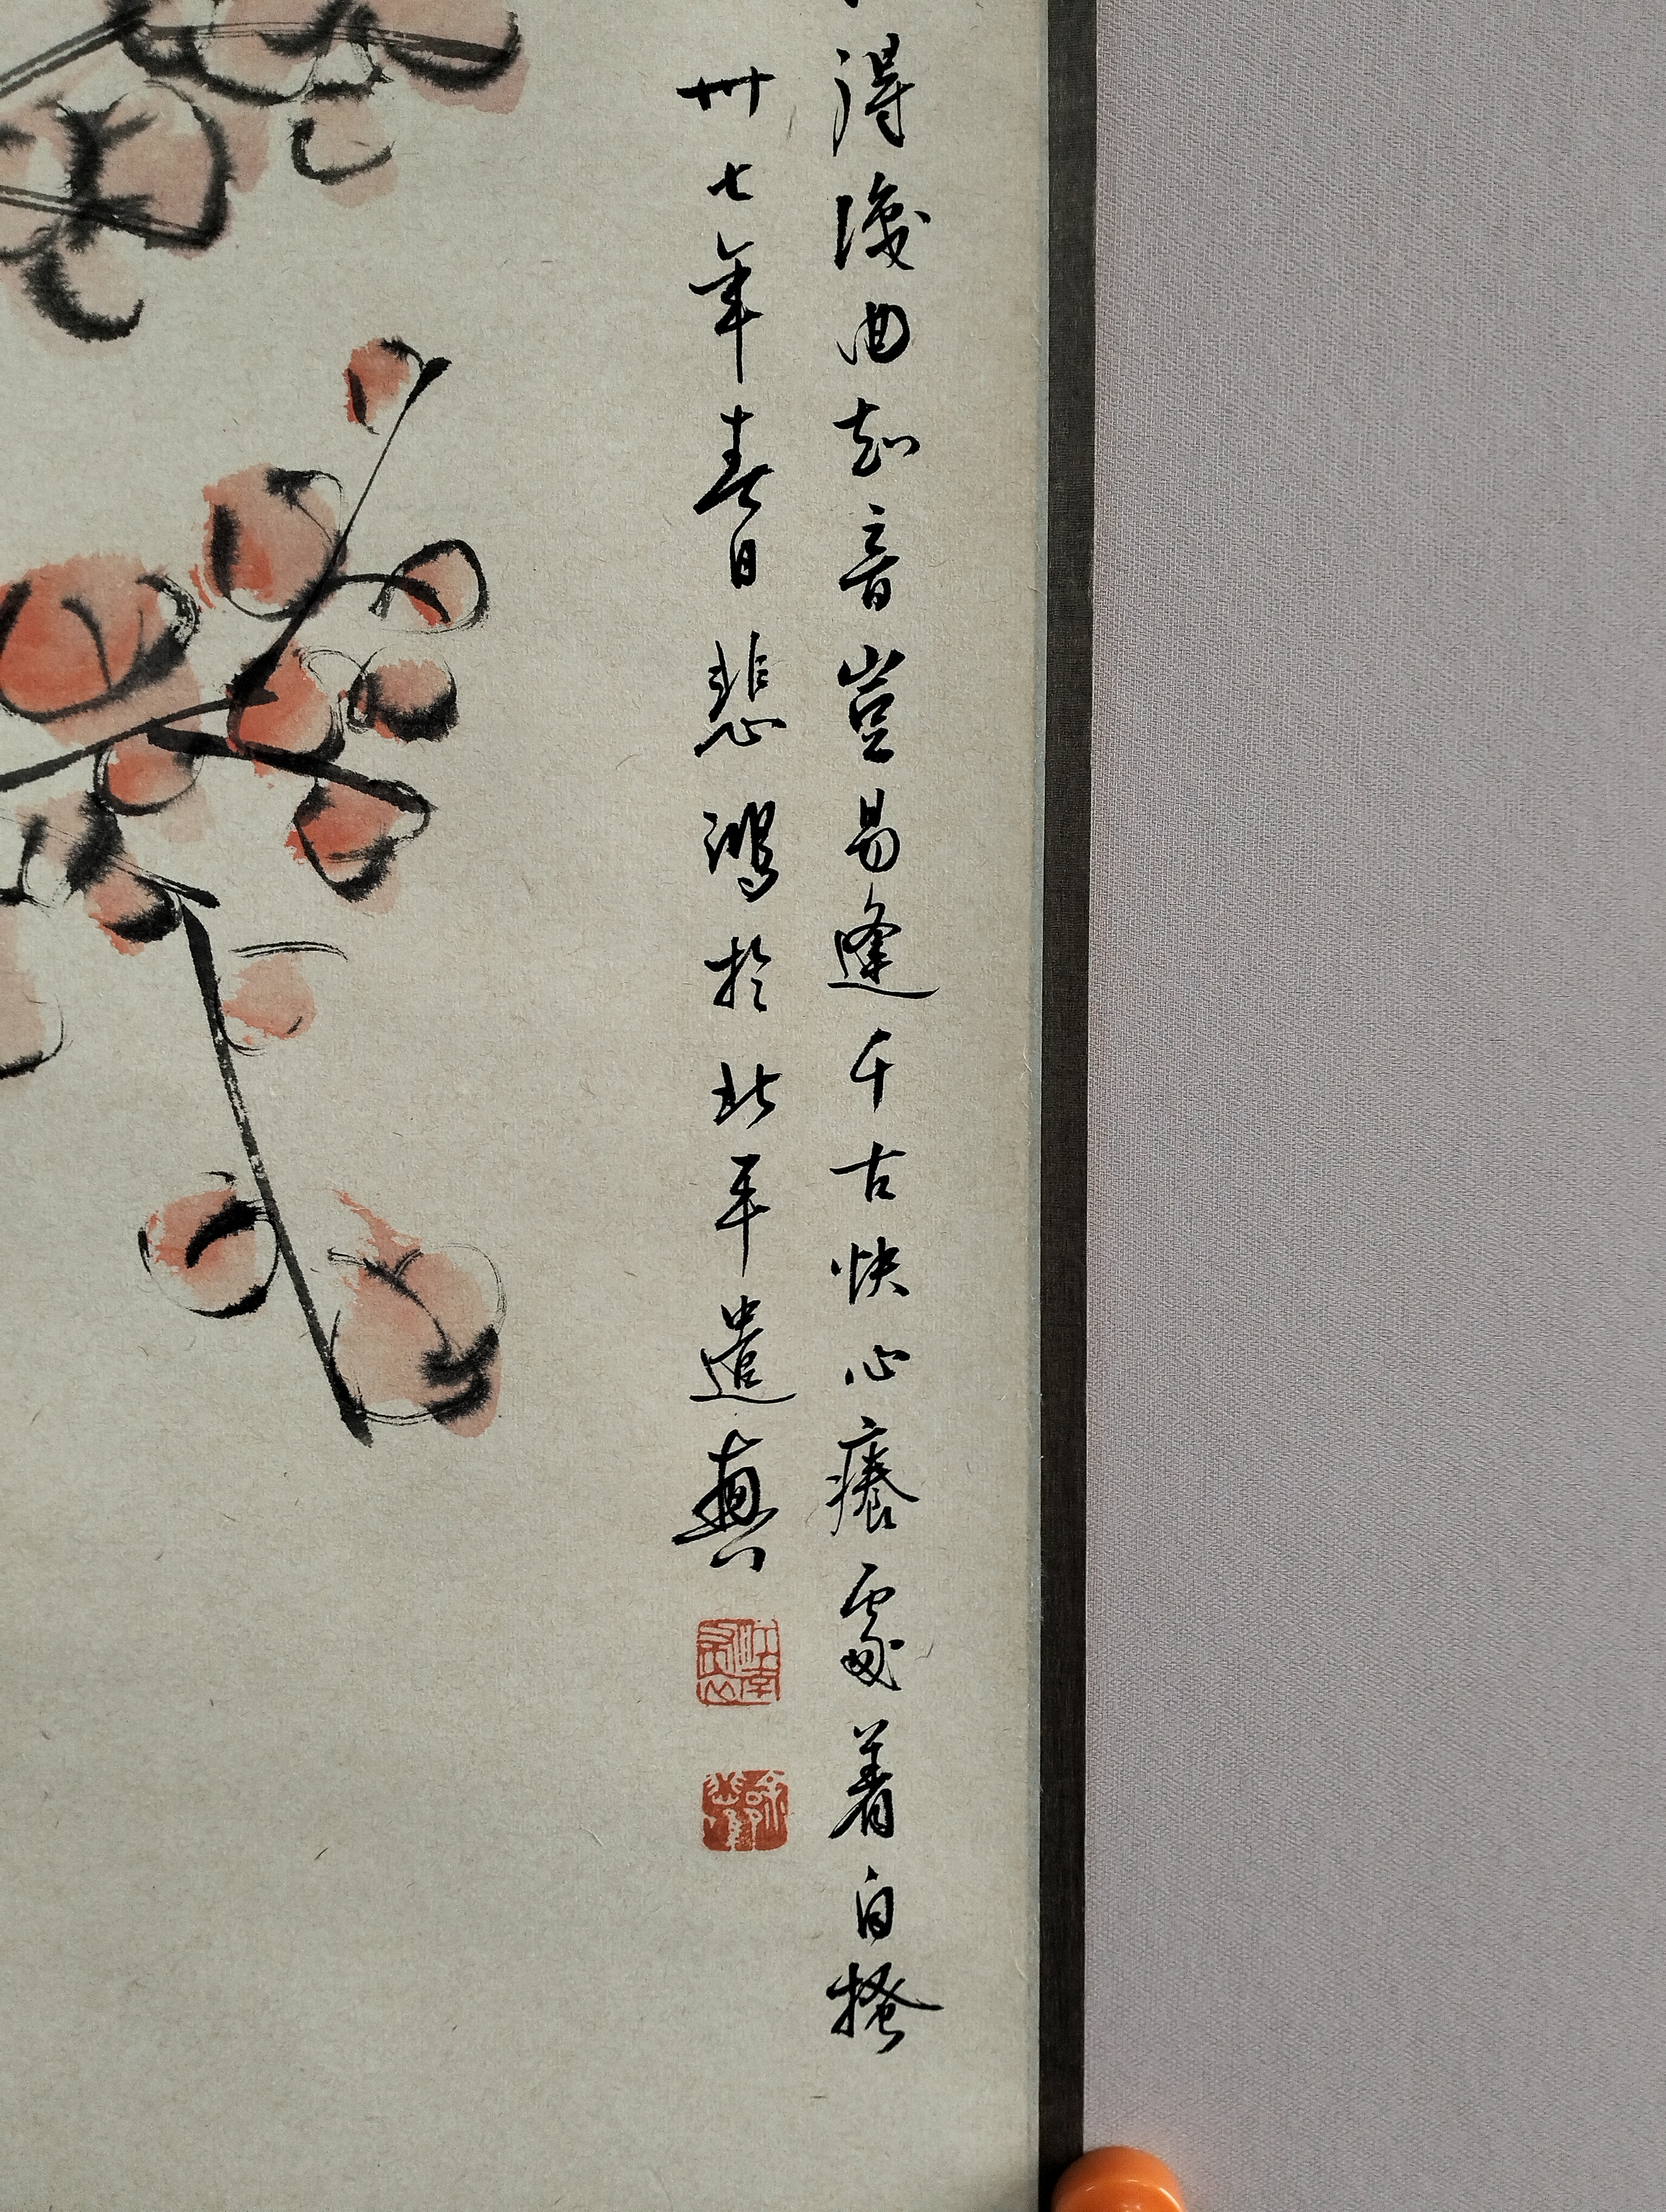 得曲知音豈易逢千古快心癢處着自搔
卅七年春日悲鴻於北平遣興